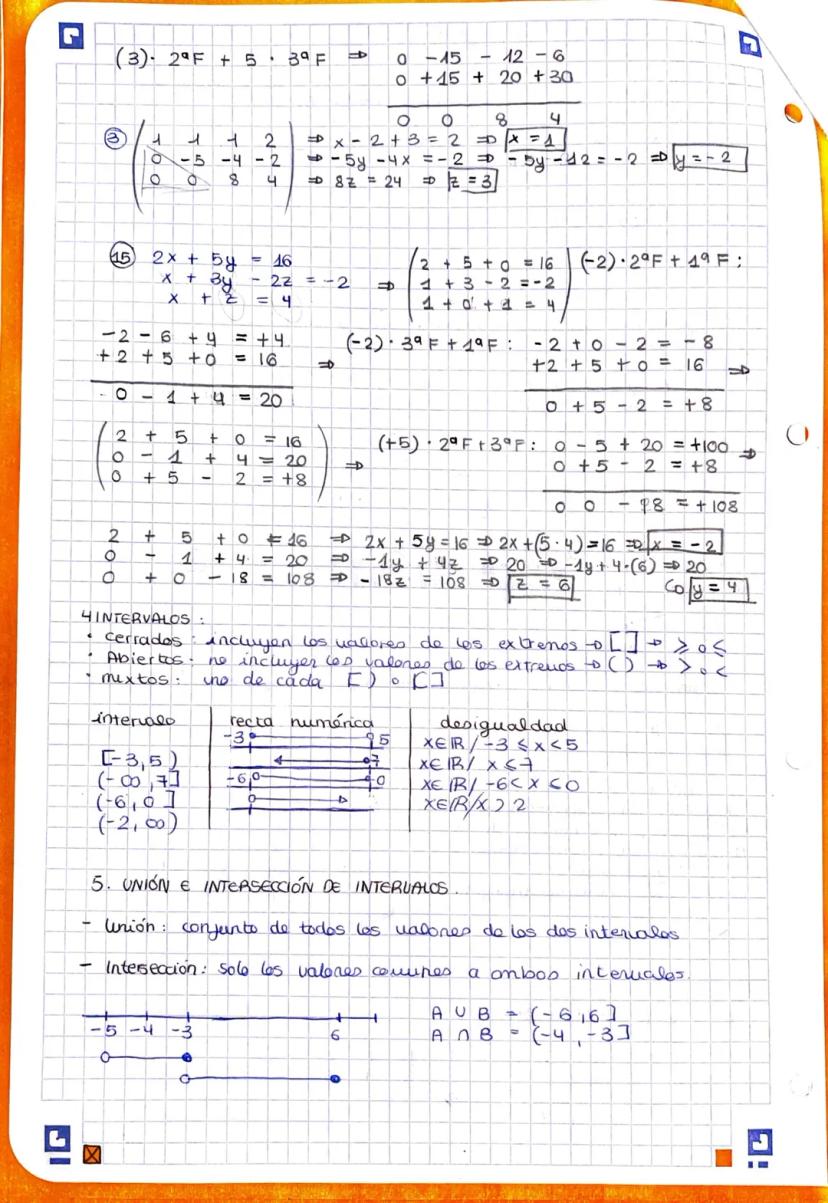 (3)· 2ªF + 5 · 3ªF ⇒ 0 -15 - 12 - 6
0 +15 + 20 +30
0 0 8 4
③ 1 1 1 2 ⇒ x - 2 + 3 = 2 ⇒ x = 1
0 -5 -4 -2 ⇒ -5y -4x = -2 ⇒ -5y -12 = -2 ⇒ y = -2
0 0 8 4 ⇒ 8z = 24 ⇒ z = 3
⑮ 2x + 5y = 16 ⇒ (2 + 5 + 0 = 16) (-2)·2ªF + 1ªF :
x + 3y - 2z = -2 1 + 3 - 2 = -2
x + z = 4 1 + 0 + 1 = 4
-2 - 6 + 4 = +4 ⇒ (-2)· 3ªF + 1ªF : -2 + 0 - 2 = -8
+2 + 5 + 0 = 16 +2 + 5 + 0 = 16 ⇒
0 - 1 + 4 = 20 0 + 5 - 2 = +8
2 + 5 + 0 = 16 (+5)· 2ªF + 3ªF : 0 - 5 + 20 = +100 ⇒
0 - 1 + 4 = 20 ⇒ 0 + 5 - 2 = +8
0 + 5 - 2 = +8 0 0 - 18 = +108
2 + 5 + 0 = 16 ⇒ 2x + 5y = 16 ⇒ 2x + (5·4) = 16 ⇒ x = -2
0 - 1 + 4 = 20 ⇒ -1y + 4z ⇒ 20 ⇒ -1y + 4·(6) ⇒ 20
0 + 0 - 18 = 108 ⇒ -18z = 108 ⇒ z = 6 y = 4
4 INTERVALOS :
· Cerrados : incluyen los valores de los extremos → [ ] → ≥ o ≤
· Abiertos : no incluyen los valores de los extremos → ( ) → > o <
· mixtos : uno de cada [ ) o ( ]
intervalo recta numérica desigualdad
[-3,5) -3 5 x∈ℝ/ -3 ≤ x < 5
(-∞,7] 7 x∈ℝ/ x ≤ 7
(-6,0] -6 0 x∈ℝ/ -6 < x ≤ 0
(-2,∞) x∈ℝ/x > 2
5. UNIÓN E INTERSECCIÓN DE INTERVALOS.
- Unión : conjunto de todos los valores de los dos intervalos
- Intersección : solo los valores comunes a ambos intervalos.
-5 -4 -3 6
A ∪ B = (-6,6]
A ∩ B = (-4,-3]